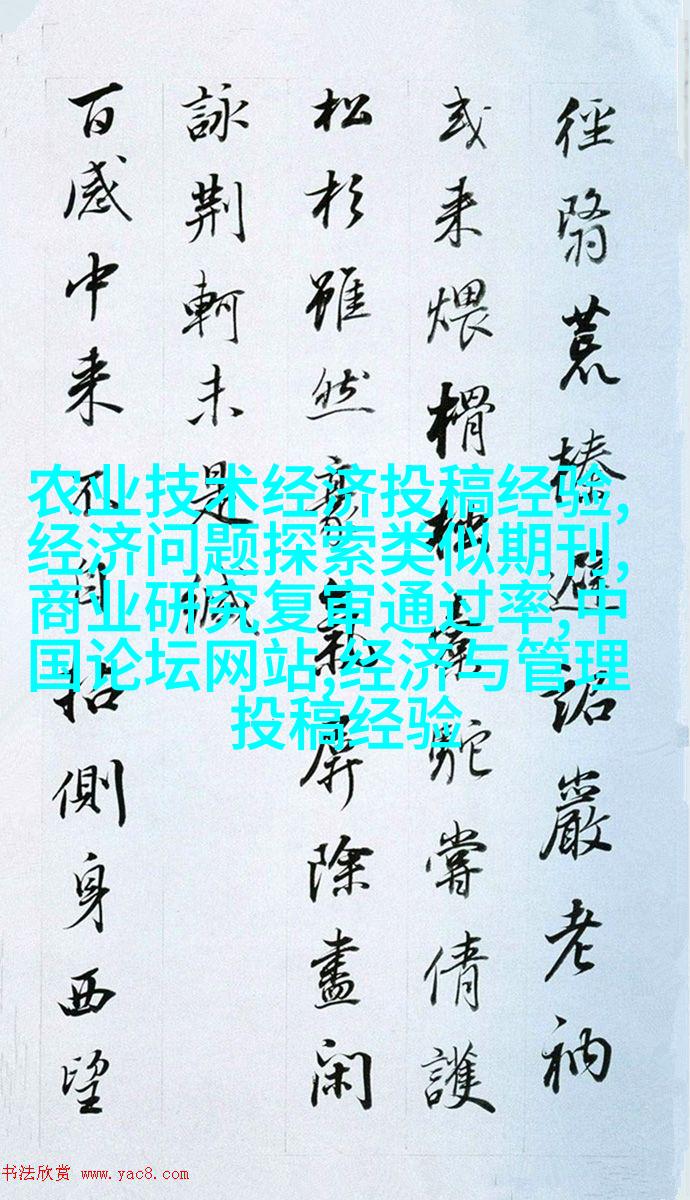 徑翳荒榛避詔巖老衲
或来煨榾柮橐駝嘗倩護
松杉雖然豪氣屏除盡閑
詠荆軻未是減
百感中来不自招側身西望
农业技术经济投稿经验,
经济问题探索类似期刊,
商业研究复审通过率,中
国论坛网站,经济与管理
投稿经验
书法欣赏 www.yac8.com